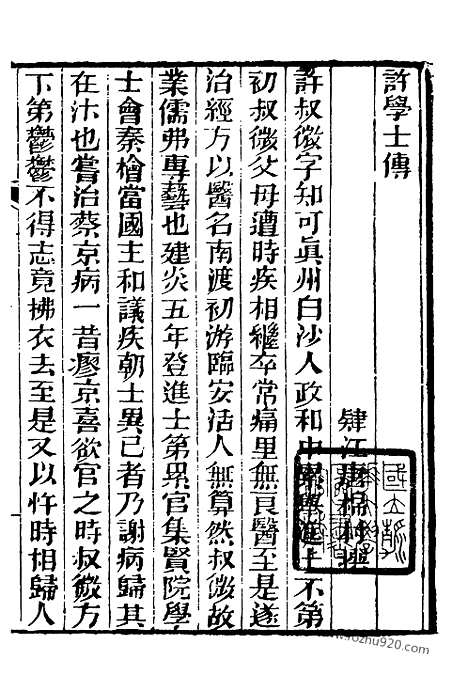 許學士傳
肄江村撰
許叔微字知可眞州白沙人政和中累舉進士不第
初叔微父母遭時疾相繼卒常痛里無良醫至是遂
治經方以醫名南渡初游臨安活人無算然叔微故
業儒弗專藝也建炎五年登進士第累官集賢院學
士會秦檜當國主和議疾朝士異己者乃謝病歸其
在汴也嘗治蔡京病一昔瘳京喜欲官之時叔微方
下第鬱鬱不得志竟拂衣去至是又以忤時相歸人